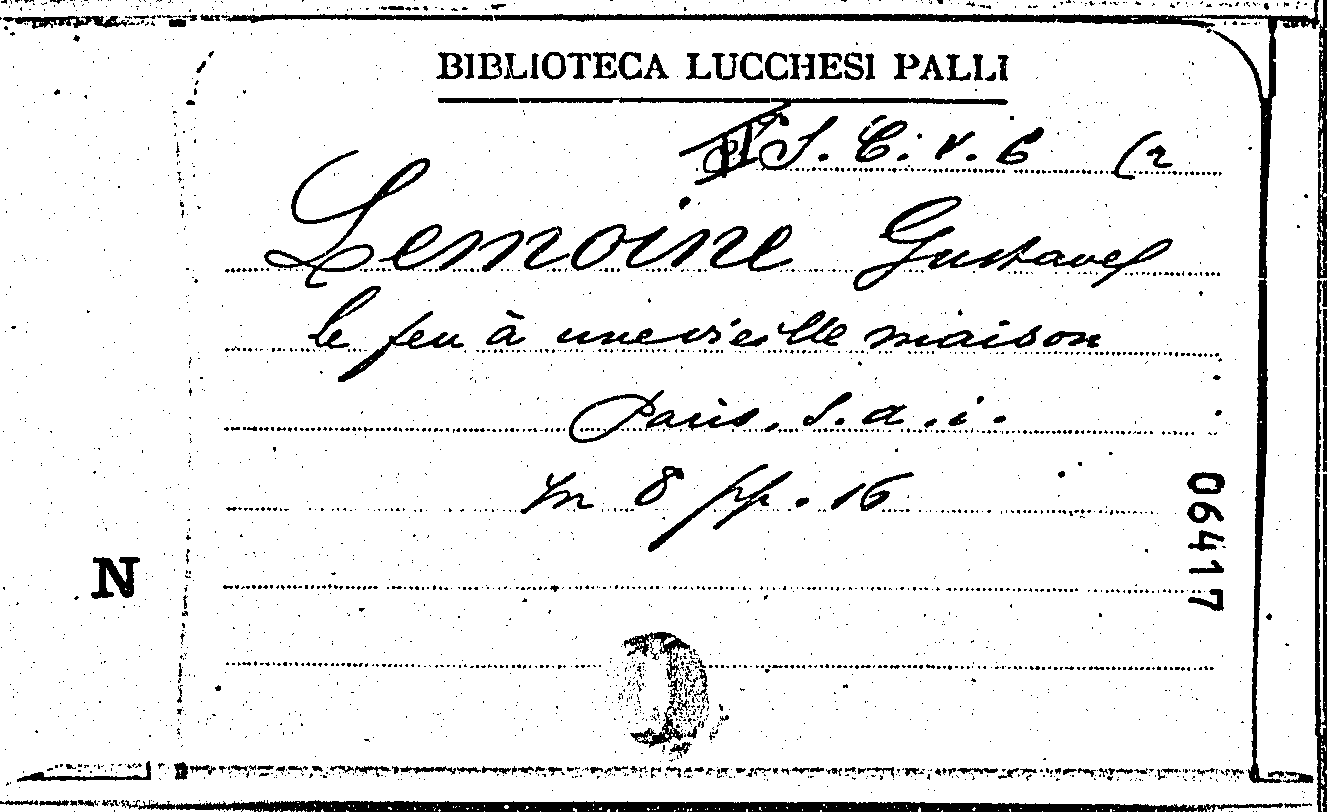 BIBLIOTECA LUCCHESI PALLI
S. C. v. 6 (2
Lemoine Gustave
le feu à une vieille maison
Paris, S. a. i.
in 8 pp. 16
06417
N